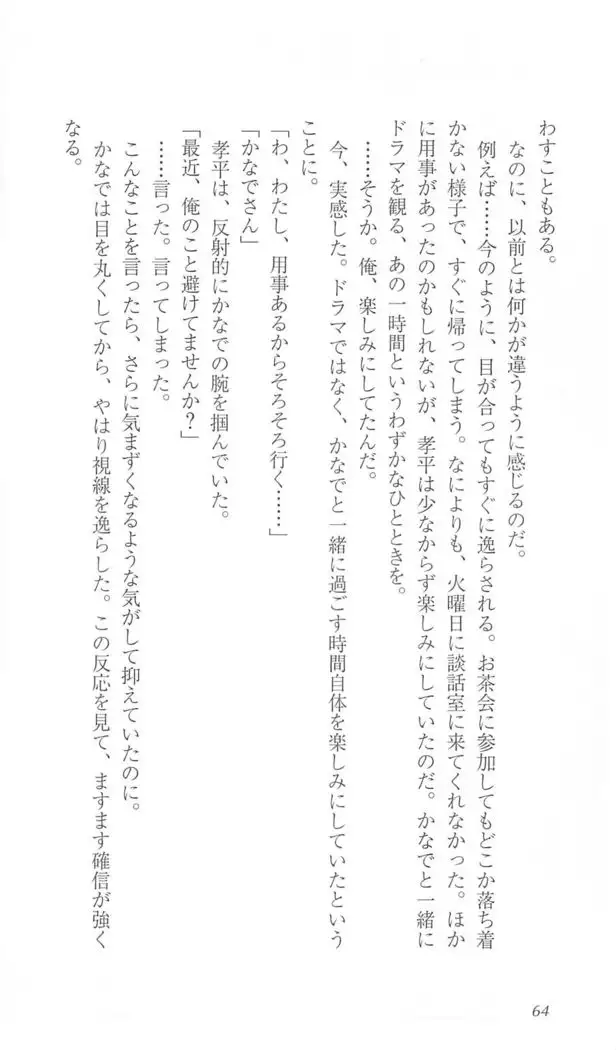 わすこともある。
なのに、以前とは何かが違うように感じるのだ。
例えば……今のように、目が合ってもすぐに逸らされる。お茶会に参加してもどこか落ち着
かない様子で、すぐに帰ってしまう。なによりも、火曜日に談話室に来てくれなかった。ほか
に用事があったのかもしれないが、孝平は少なからず楽しみにしていたのだ。かなでと一緒に
ドラマを観る、あの一時間というわずかなひとときを。
……そうか。俺、楽しみにしてたんだ。
今、実感した。ドラマではなく、かなでと一緒に過ごす時間自体を楽しみにしていたという
ことに。
「わ、わたし、用事あるからそろそろ行く……」
「かなでさん」
孝平は、反射的にかなでの腕を掴んでいた。
「最近、俺のこと避けてませんか?」
……言った。言ってしまった。
こんなことを言ったら、さらに気まずくなるような気がして抑えていたのに。
かなでは目を丸くしてから、やはり視線を逸らした。この反応を見て、ますます確信が強く
なる。
64